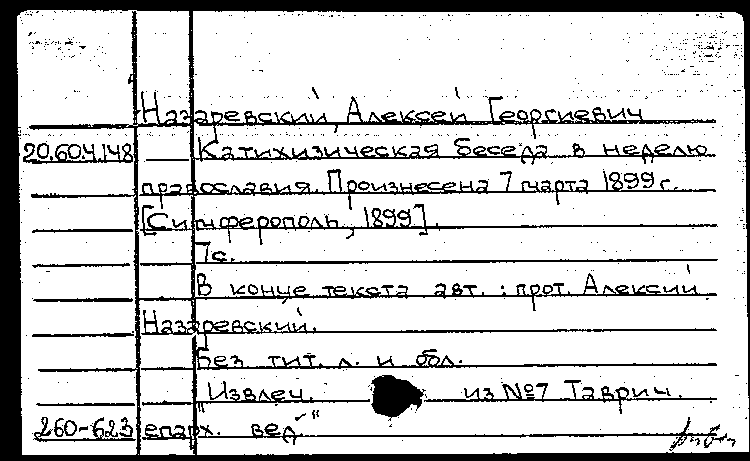 Назаревский, Алексей Георгиевич
20.60.4.148 Катихизическая беседа в неделю
православия. Произнесена 7 марта 1899 г.
[Симферополь, 1899].
7с.
В конце текста авт. : прот. Алексий
Назаревский.
Без тит. л. и обл.
Извлеч. из №7 Таврич.
260-623 "епарх. вед"